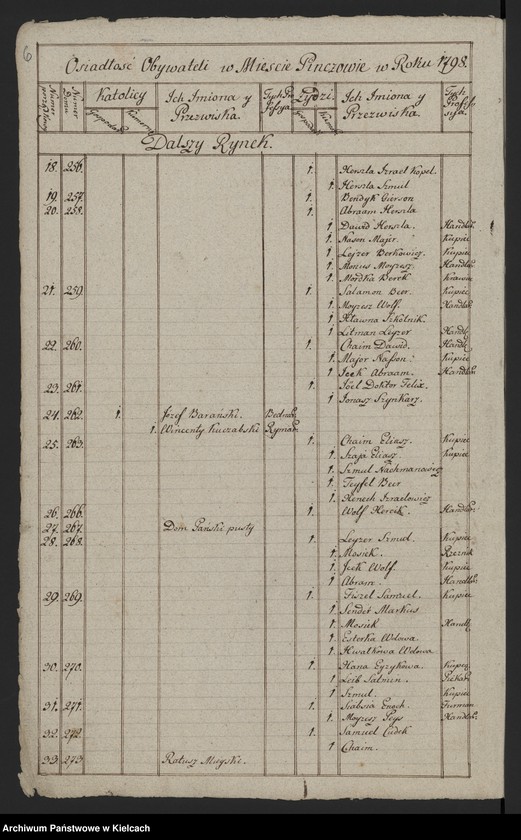 6
Osiadłość Obywateli w Mieście Pinczowie w Roku 1798.
Numer Domu Katolicy Ich Imiona y Przezwiska. Tych Professya Żydzi. Ich Imiona y Przezwiska. Tych Professya.
Gospodarz Komornik Gospodarz Komornik
Dalszy Rynek.
18. 256. 1. Herszla Izrael Kopel.
1. Herszla Szmul
19. 257. 1. Bendyk Gierson
20. 258. 1. Abraam Herszla
1. Dawid Herszla. Handlarz
1. Nason Majer. Kupiec
1. Lejzer Berkowicz. Kupiec
1. Monus Moyzesz. Handlarz
1. Mordka Berek Krawiec
21. 259. 1. Salamon Beer. Kupiec
1. Moyzesz Wolf. Handlarz
1. Hławna Szkelnik.
1. Litman Leyzer Handlarz
22. 260. 1. Chaim Dawid. Handlarz
1. Major Nasson. Kupiec
1. Icek Abraam. Handlarz
23. 261. 1. Joel Doktor Felix.
1. Jonasz Szynkarz.
24. 262. 1. Jozef Barański. Bednarz
1. Wincenty Kuczabski Rymarz
25. 263. 1. Chaim Eliasz. Kupiec
1. Szaja Eliasz. Kupiec
1. Szmul Nachmanowicz
1. Teyfel Beer
1. Henech Izraelowicz
26. 266. 1. Wolf Hercik. Handlarz
27. 267. Dom Pański pusty
28. 268. 1. Leyzer Szmul. Kupiec
1. Mosiek. Rzeznik
1. Icek Wolf. Kupiec
1. Abram. Handlarz
29. 269. 1. Fiszel Samuel. Kupiec
1. Sender Markus
1. Mosiek Handlarz
1. Esterka Wdowa.
1. Hwalkowa Wdowa
30. 270. 1. Hana Eyzykowa. Kupiec
1. Leib Piekarz
1. Szmul. Kupiec
31. 271. 1. Sabsia Enoch. Furman
1. Moyzesz Handlarz
32. 272. 1. Samuel Ludek
1. Chaim.
33. 273. Ratusz Mieyski.
Archiwum Państwowe w Kielcach